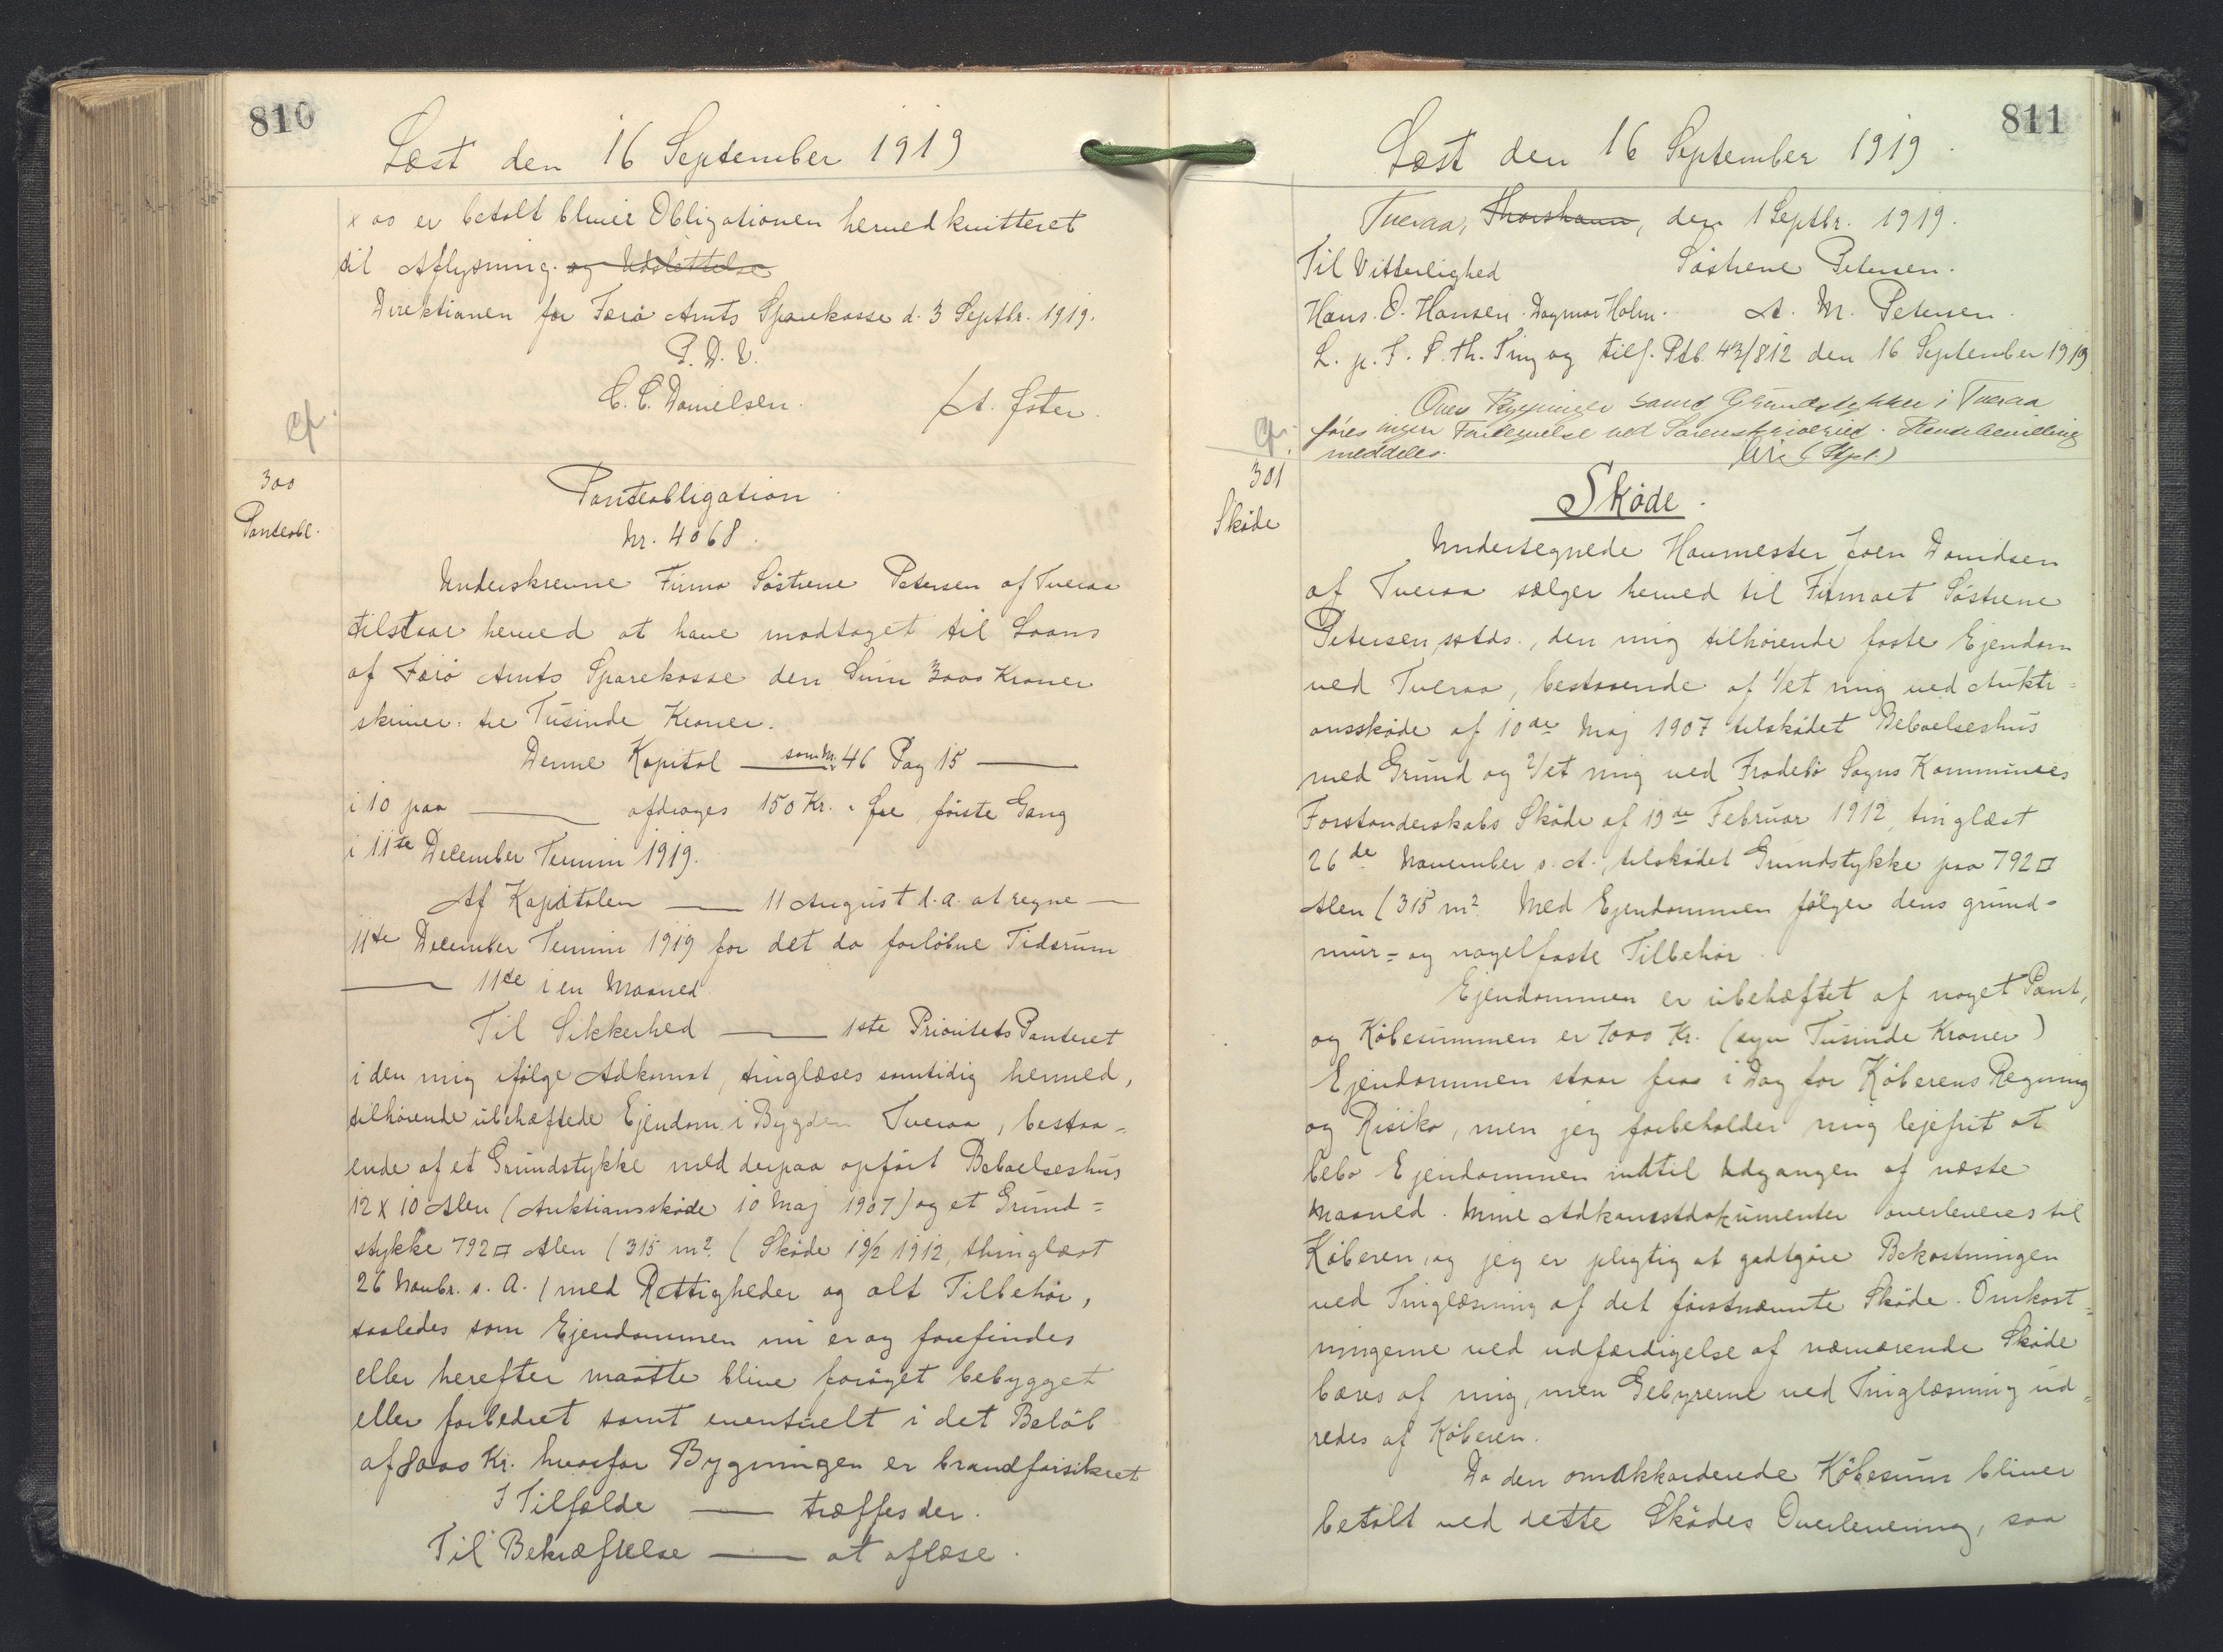 810
Læst den 16 September 1919
x os er betalt bliver Obligationen herved kvitteret
til Aflysning. og Udslettelse
Direktionen for Færø Amts Sparekasse d. 3 Septbr. 1919.
P. D. V.
C. C. Danielsen. A. Øster.
cf.
300
Panteobl.
Panteobligation
Nr. 4068.
Underskrevne Firma Søstrene Petersen af Tveraa
tilstaar herved at have modtaget til Laans
af Færø Amts Sparekasse den Sum 3000 Kroner
skriver: tre Tusinde Kroner.
Denne Kapital — som Nr. 46 Pag 15 —
i 10 paa — afdrages 150 Kr. " Øre første Gang
i 11te December Termin 1919.
Af Kapitalen — 11 August d. a. at regne —
11te December Termin 1919 for det da forløbne Tidsrum
— 11te i en Maaned.
Til Sikkerhed — 1ste Prioritets Panteret
i den mig ifølge Adkomst, tinglæses samtidig hermed,
tilhørende ubehæftede Ejendom i Bygden Tveraa, bestaa-
ende af et Grundstykke med derpaa opført Beboelseshus
12 x 10 Alen (Auktionsskøde 10 Maj 1907) og et Grund=
stykke 792 □ Alen (315 m². (Skøde 19/2 1912, thinglæst
26 Novbr. s. A.) med Rettigheder og alt Tilbehør,
saaledes som Ejendommen nu er og forefindes
eller herefter maatte blive forøget bebygget
eller forbedret samt eventuelt i det Beløb
af 8000 Kr. hvorfor Bygningen er brandforsikret
I Tilfælde — træffes der.
Til Bekræftelse — at aflæse.
811
Læst den 16 September 1919.
Tveraa, Thorshavn, den 1 Septbr. 1919.
Til Vitterlighed Søstrene Petersen.
Hans. O. Hansen. Dagmar Holm. A. M. Petersen.
L. p. S. S. Th. Ting og tilf. Ptb. 43/812 den 16 September 1919
Over Bygninger samt Grundstykker i Tveraa
føres ingen Fortegnelse ved Sorenskriveriet. Renteberilling
meddeles. (Stpl.)
cf.
301
Skøde
Skøde.
Undertegnede Havnemester Joen Davidsen
af Tveraa sælger herved til Firmaet Søstrene
Petersen sstds., den mig tilhørende faste Ejendom
ved Tveraa, bestaaende af 1/et mig ved Aukti=
onsskøde af 10de Maj 1907 tilskødet Beboelseshus
med Grund og 2/et mig ved Frodebø Sogns Kommunes
Forstanderskabs Skøde af 19de Februar 1912, tinglæst
26de November s. A., tilskødet Grundstykke paa 792 □
Alen (315 m². Med Ejendommen følger dens grund-
mur= og nagelfaste Tilbehør.
Ejendommen er ubehæftet af noget Pant,
og Købesummen er 7000 Kr. (syv Tusinde Kroner)
Ejendommen staar fra i Dag for Køberens Regning
og Risiko, men jeg forbeholder mig lejefrit at
bebo Ejendommen indtil Udgangen af næste
Maaned. Mine Adkomstdokumenter overleveres til
Køberen, og jeg er pligtig at godtgøre Bekostningen
ved Tinglæsning af det førstnævnte Skøde. Omkost=
ningerne ved udfærdigelse af nærværende Skøde
bæres af mig, men Gebyrerne ved Tinglæsning ud=
redes af Køberen.
Da den omakkorderede Købesum bliver
betalt ved dette Skødes Overlevering, saa